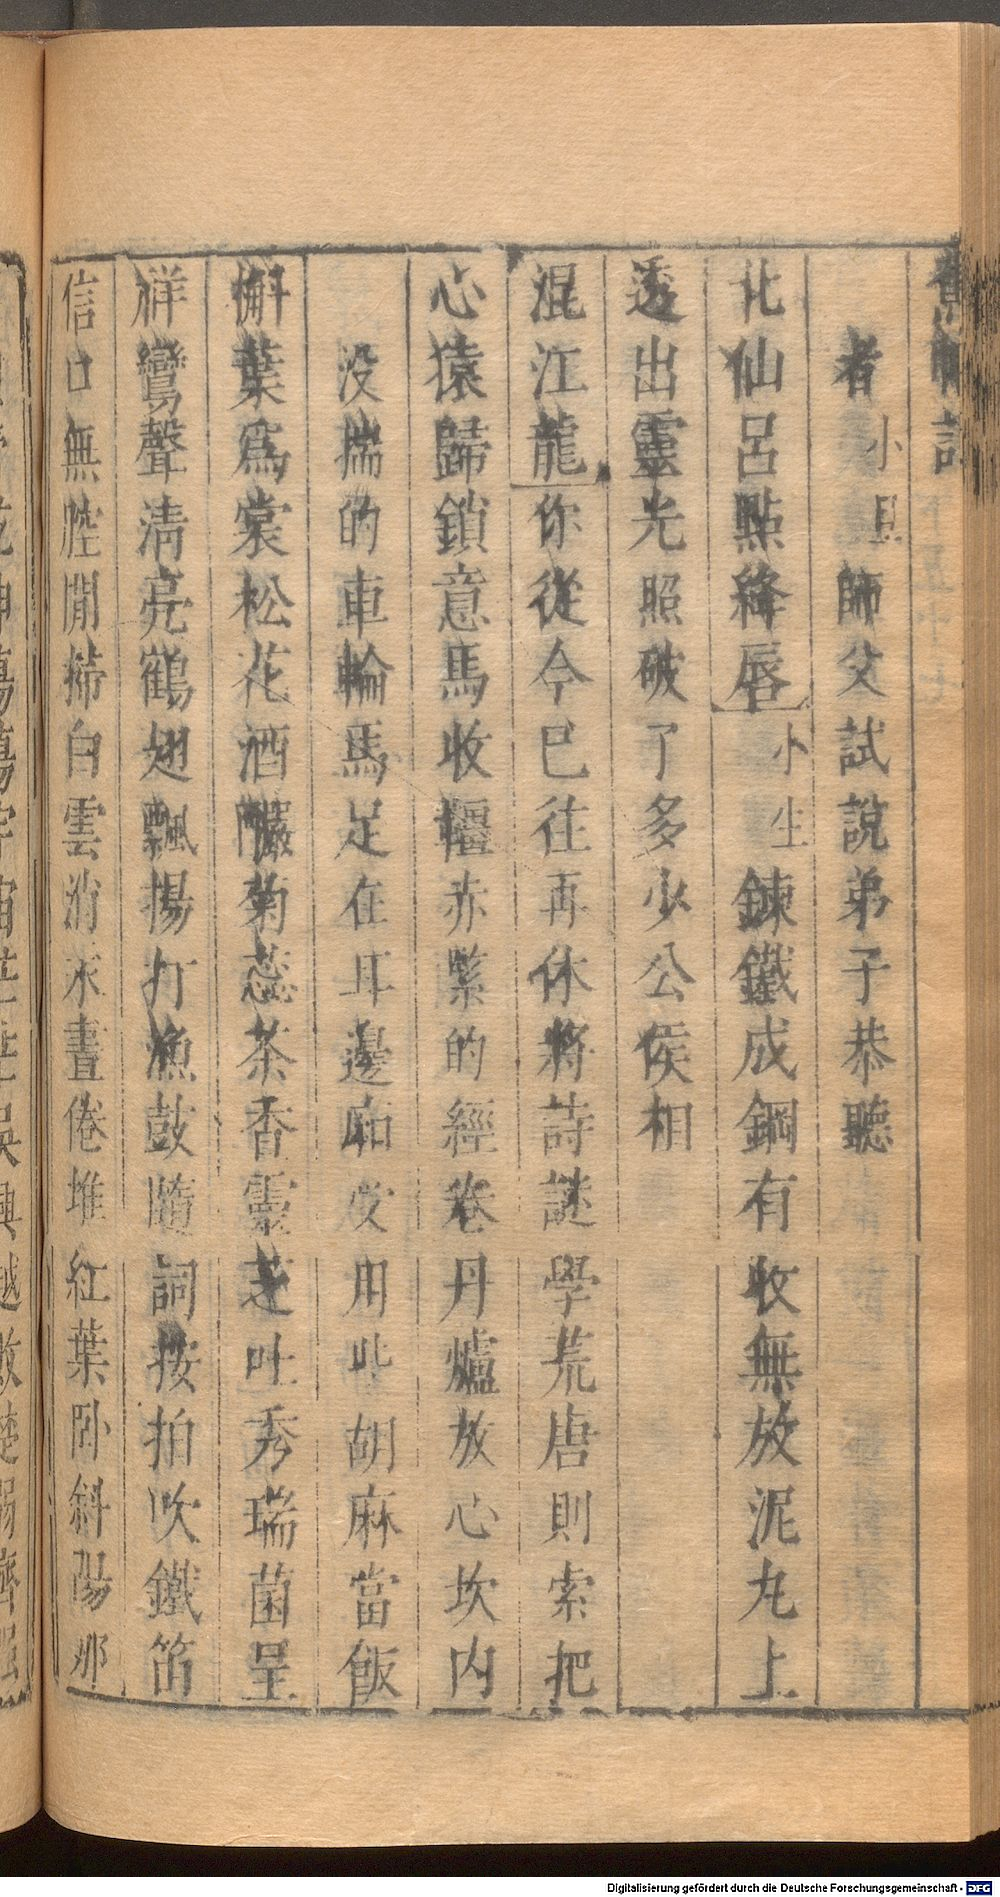 者小旦師父試說弟子恭聽
北仙呂點絳唇小生鍊鐵成鋼有收無放泥丸上
透出靈光照破了多少公侯相
混江龍你從今已往再休將詩謎學荒唐則索把
心猿歸鎖意馬收韁赤緊的經卷丹爐放心坎內
没揣的車輪馬足在耳邊廂㢤用些胡麻當飯
槲葉爲裳松花酒釅菊蕊茶香靈芝吐秀瑞菌呈
祥鸞聲清亮鶴翅飄揚打漁鼓隨詞按拍吹鐵笛
信口無腔閒掃白雲消永晝倦堆紅葉卧斜陽那
Digitalisierung gefördert durch die Deutsche Forschungsgemeinschaft - DFG